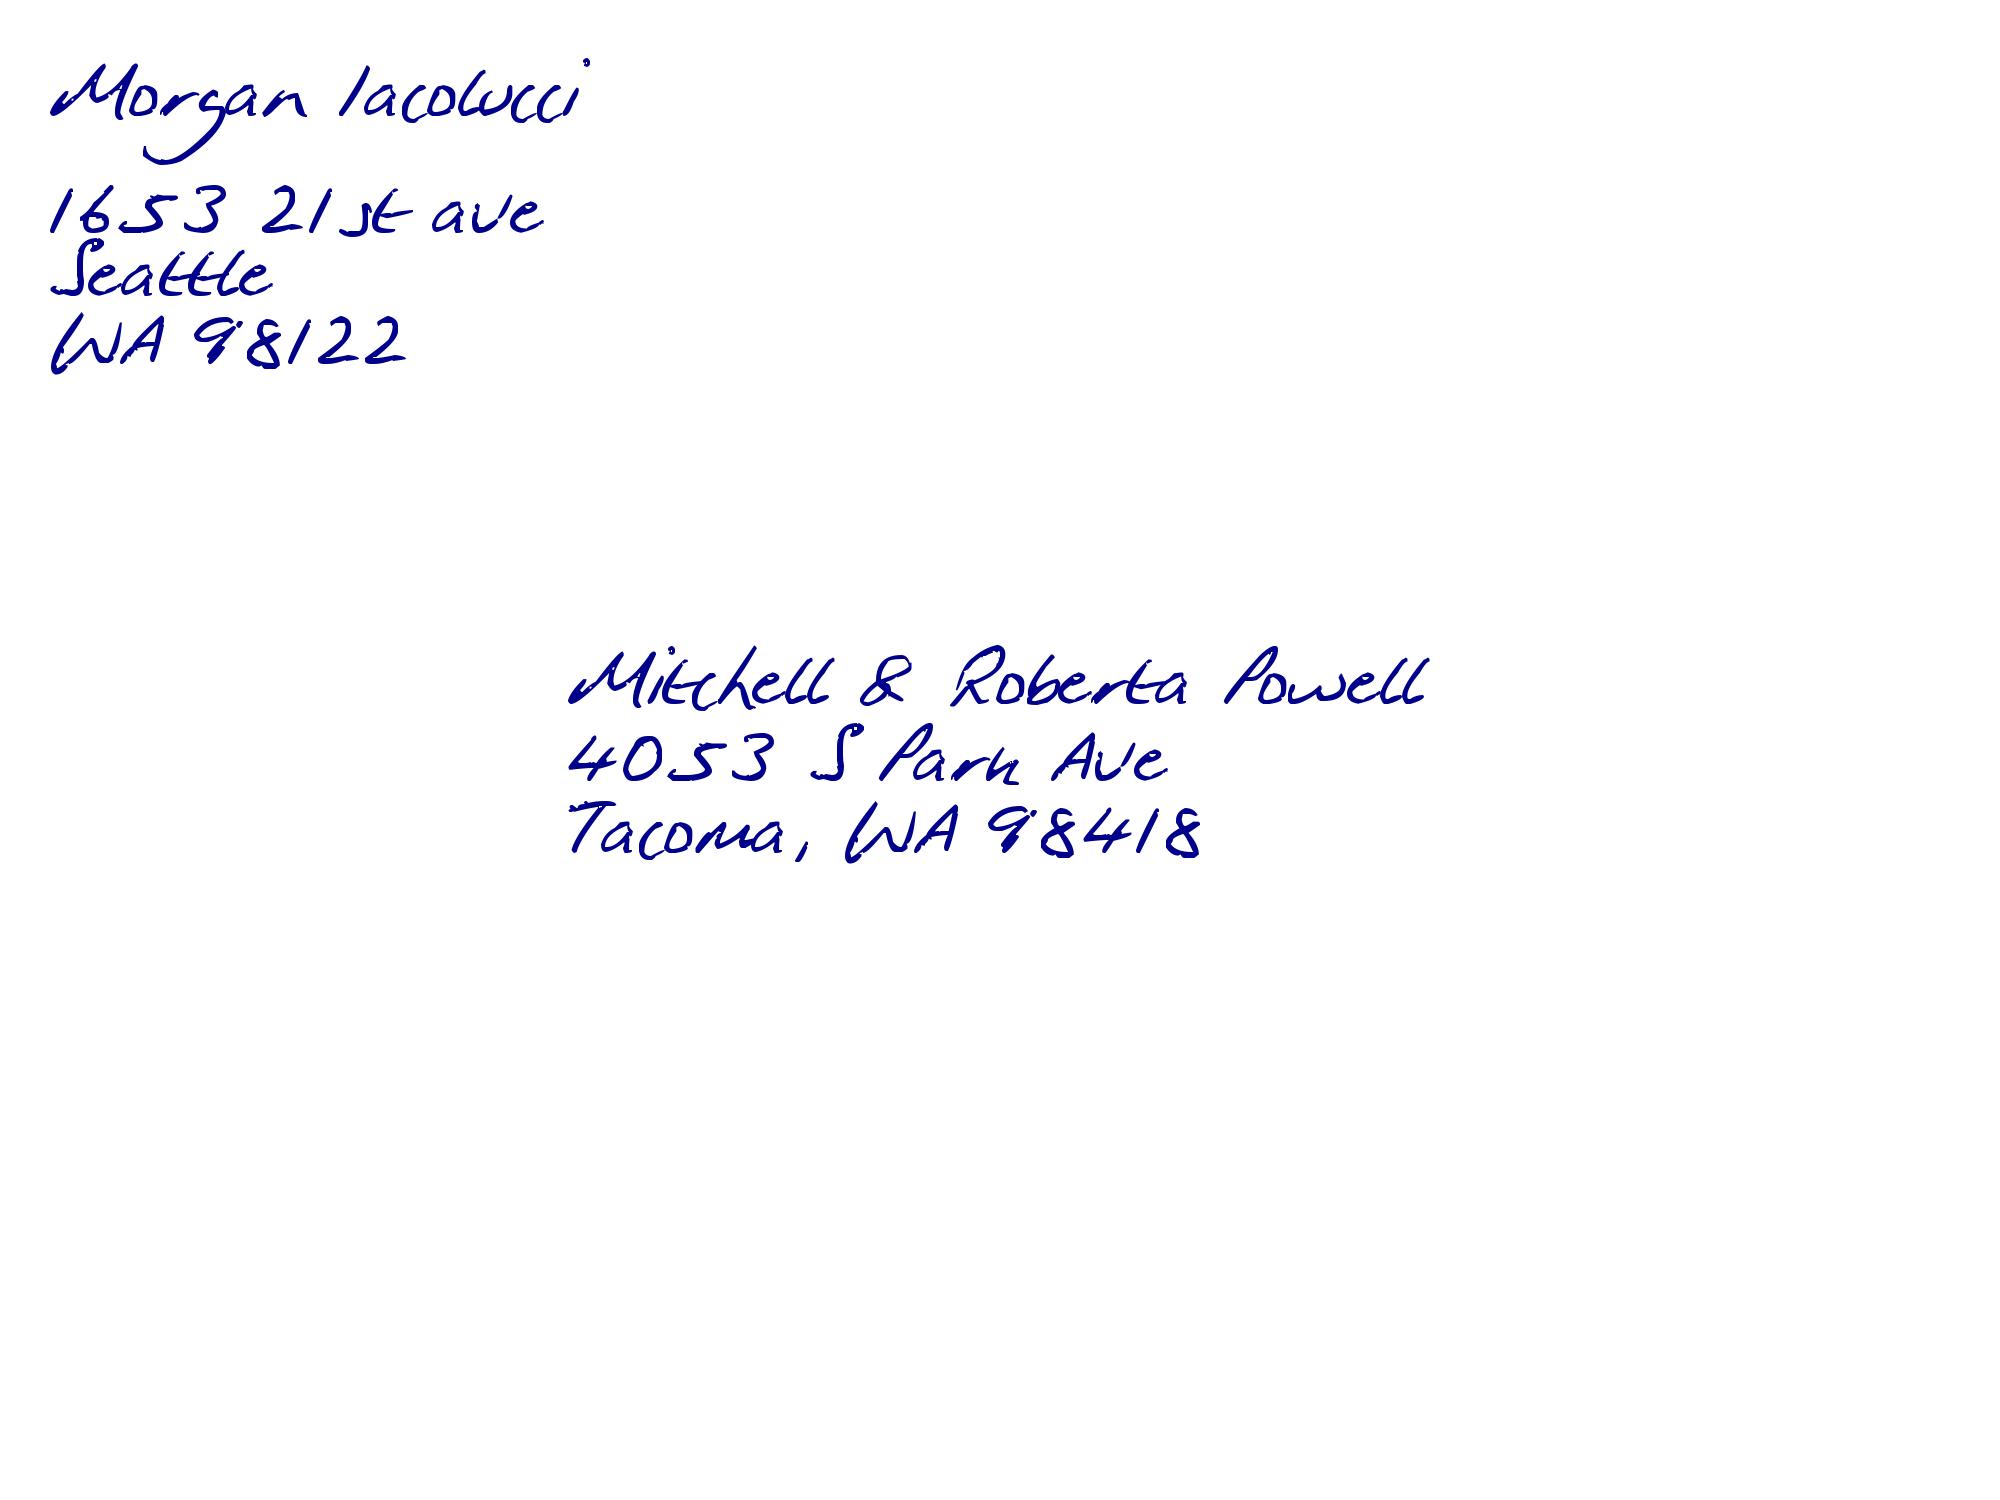 Morgan Iacolucci
1653 21st ave
Seattle
WA 98122
Mitchell & Roberta Powell
4053 S Park Ave
Tacoma, WA 98418